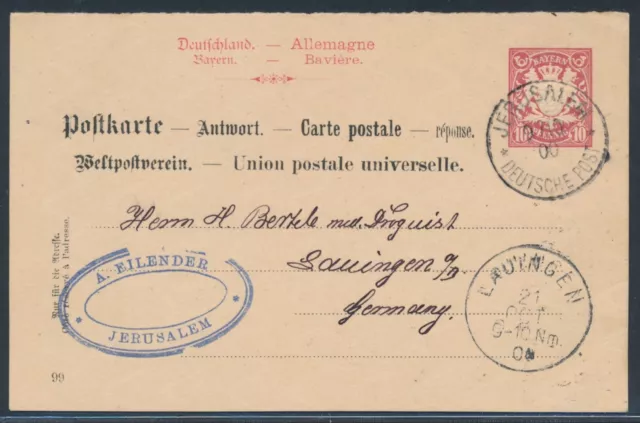 Deutschland. — Allemagne
Bayern. — Bavière.
BAYERN
10 10
JERUSALEM
00
* DEUTSCHE POST *
Postkarte — Antwort. — Carte postale — réponse.
Weltpostverein. — Union postale universelle.
Herrn H. Bertele med. Droguist
Lauingen a/D
Germany.
Nur für die Adresse.
Côté réservé à l'adresse.
A. EILENDER
JERUSALEM
LAUINGEN
21
OCT
9-10 Nm.
00
99